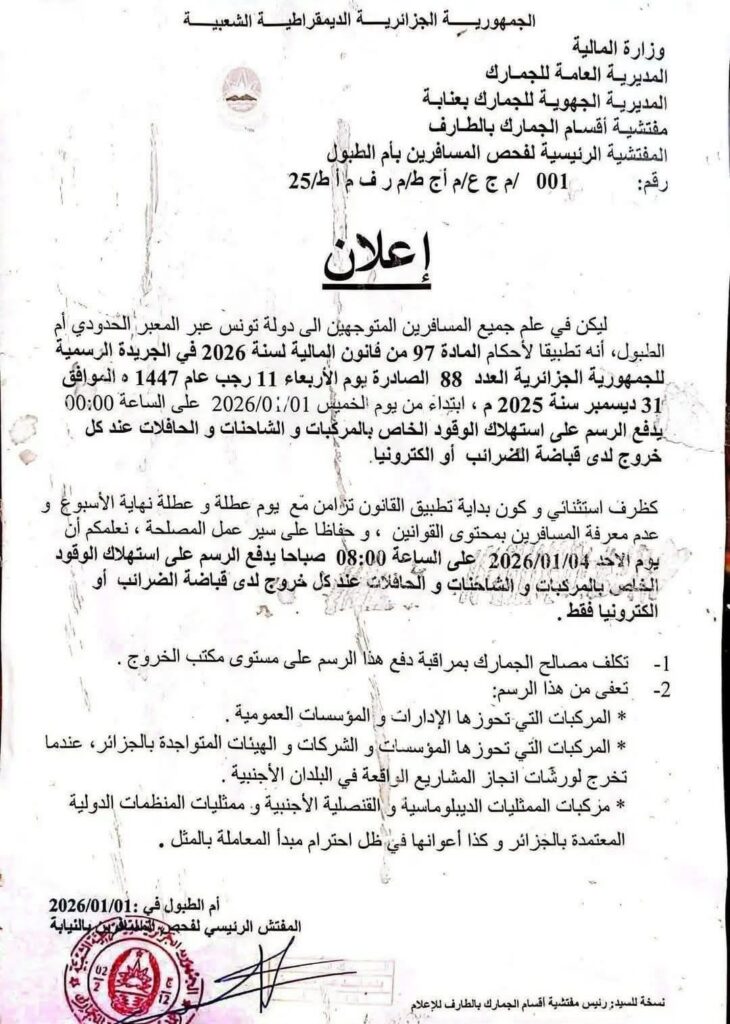 الجمهوريـــة الجزائريـة الديمقراطيـة الشعبيـــة
وزارة المالية
المديرية العامة للجمارك
المديرية الجهوية للجمارك بعنابة
مفتشية أقسام الجمارك بالطارف
المفتشية الرئيسية لفحص المسافرين بأم الطبول
رقم: 001 /م ج ع/م أج ط/م ر ف م أ ط/25
إعلان
ليكن في علم جميع المسافرين المتوجهين الى دولة تونس عبر المعبر الحدودي أم
الطبول، أنه تطبيقا لأحكام المادة 97 من قانون المالية لسنة 2026 في الجريدة الرسمية
للجمهورية الجزائرية العدد 88 الصادرة يوم الأربعاء 11 رجب عام 1447 ه الموافق
31 ديسمبر سنة 2025 م ، ابتداء من يوم الخميس 2026/01/01 على الساعة 00:00
يدفع الرسم على استهلاك الوقود الخاص بالمركبات و الشاحنات و الحافلات عند كل
خروج لدى قباضة الضرائب أو الكترونيا.
كظرف استثنائي و كون بداية تطبيق القانون تزامن مع يوم عطلة و عطلة نهاية الأسبوع و
عدم معرفة المسافرين بمحتوى القوانين ، و حفاظا على سير عمل المصلحة ، نعلمكم أن
يوم الاحد 2026/01/04 على الساعة 08:00 صباحا يدفع الرسم على استهلاك الوقود
الخاص بالمركبات و الشاحنات و الحافلات عند كل خروج لدى قباضة الضرائب أو
الكترونيا فقط .
1- تكلف مصالح الجمارك بمراقبة دفع هذا الرسم على مستوى مكتب الخروج .
2- تعفى من هذا الرسم:
* المركبات التي تحوزها الإدارات و المؤسسات العمومية .
* المركبات التي تحوزها المؤسسات و الشركات و الهيئات المتواجدة بالجزائر، عندما
تخرج لورشات انجاز المشاريع الواقعة في البلدان الأجنبية .
* مركبات الممثليات الديبلوماسية و القنصلية الأجنبية و ممثليات المنظمات الدولية
المعتمدة بالجزائر و كذا أعوانها في ظل احترام مبدأ المعاملة بالمثل .
أم الطبول في :2026/01/01
المفتش الرئيسي لفحص المسافرين بالنيابة
نسخة للسيد: رئيس مفتشية أقسام الجمارك بالطارف للإعلام